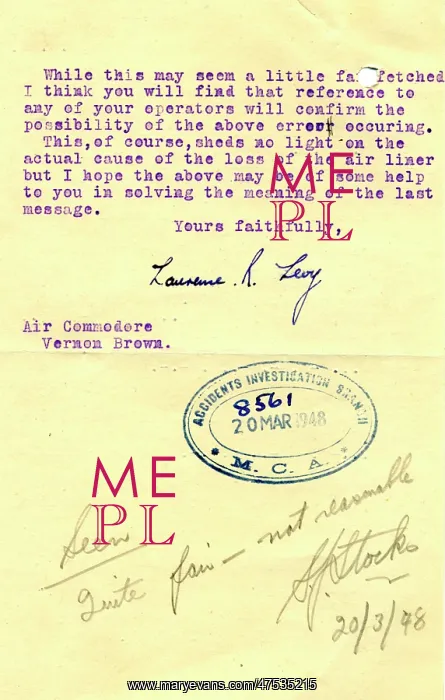 While this may seem a little far fetched
I think you will find that reference to
any of your operators will confirm the
possibility of the above error occuring.
This,of course,sheds no light on the
actual cause of the loss of the air liner
but I hope the above may be of some help
to you in solving the meaning of the last
message.
Yours faithfully,
Laurence. R. Levy
Air Commodore
Vernon Brown.
ACCIDENTS INVESTIGATION BRANCH
8561
20 MAR 1948
M. C. A.
ME
PL
ME
PL
Seen
Quite fair - not reasonable
S.J. Stocks
20/3/48
www.maryevans.com/47535215